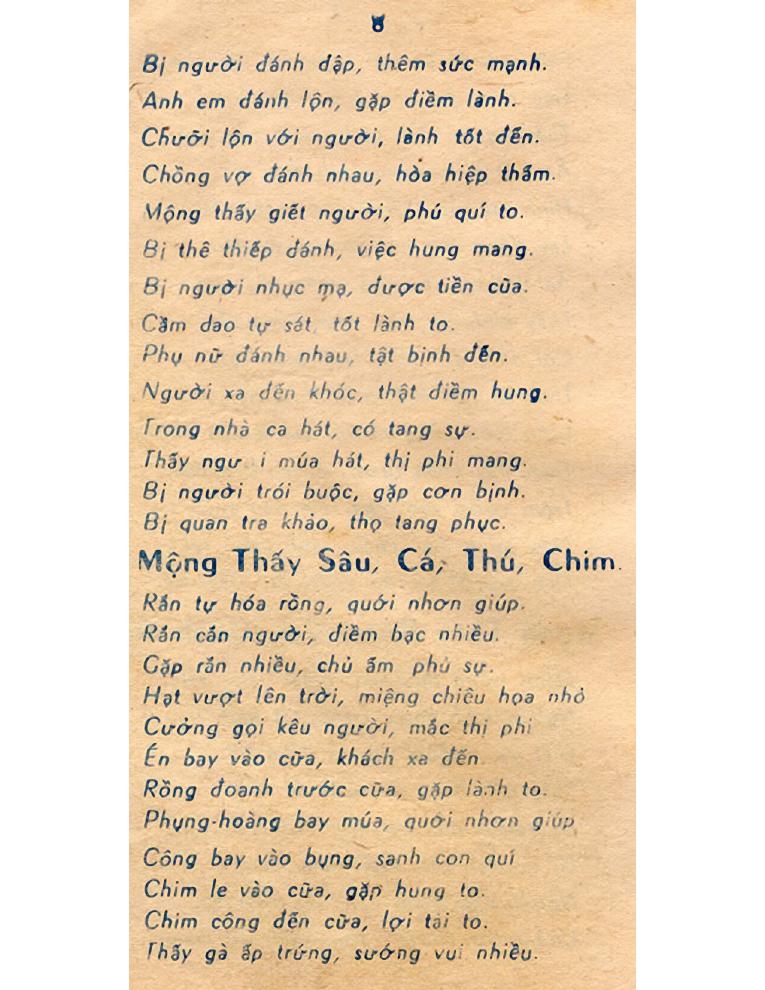 8
Bị người đánh đập, thêm sức mạnh.
Anh em đánh lộn, gặp điềm lành.
Chưỡi lộn với người, lành tốt đến.
Chồng vợ đánh nhau, hòa hiệp thắm.
Mộng thấy giết người, phú quí to.
Bị thê thiếp đánh, việc hung mang.
Bị người nhục mạ, được tiền của.
Cầm dao tự sát, tốt lành to.
Phụ nữ đánh nhau, tật bịnh đến.
Người xa đến khóc, thật điềm hung.
Trong nhà ca hát, có tang sự.
Thấy ngư i múa hát, thị phi mang.
Bị người trói buộc, gặp cơn bịnh.
Bị quan tra khảo, thọ tang phục.
Mộng Thấy Sâu, Cá, Thú, Chim.
Rắn tự hóa rồng, quới nhơn giúp.
Rắn cắn người, điềm bạc nhiều.
Gặp rắn nhiều, chủ ấm phủ sự.
Hạt vượt lên trời, miệng chiêu họa nhỏ
Cưởng gọi kêu người, mắc thị phi
Én bay vào cữa, khách xa đến
Rồng doanh trước cữa, gặp lành to.
Phụng-hoàng bay múa, quới nhơn giúp
Công bay vào bụng, sanh con quí
Chim le vào cữa, gặp hung to.
Chim công đến cữa, lợi tài to.
Thấy gà ấp trứng, sướng vui nhiều.